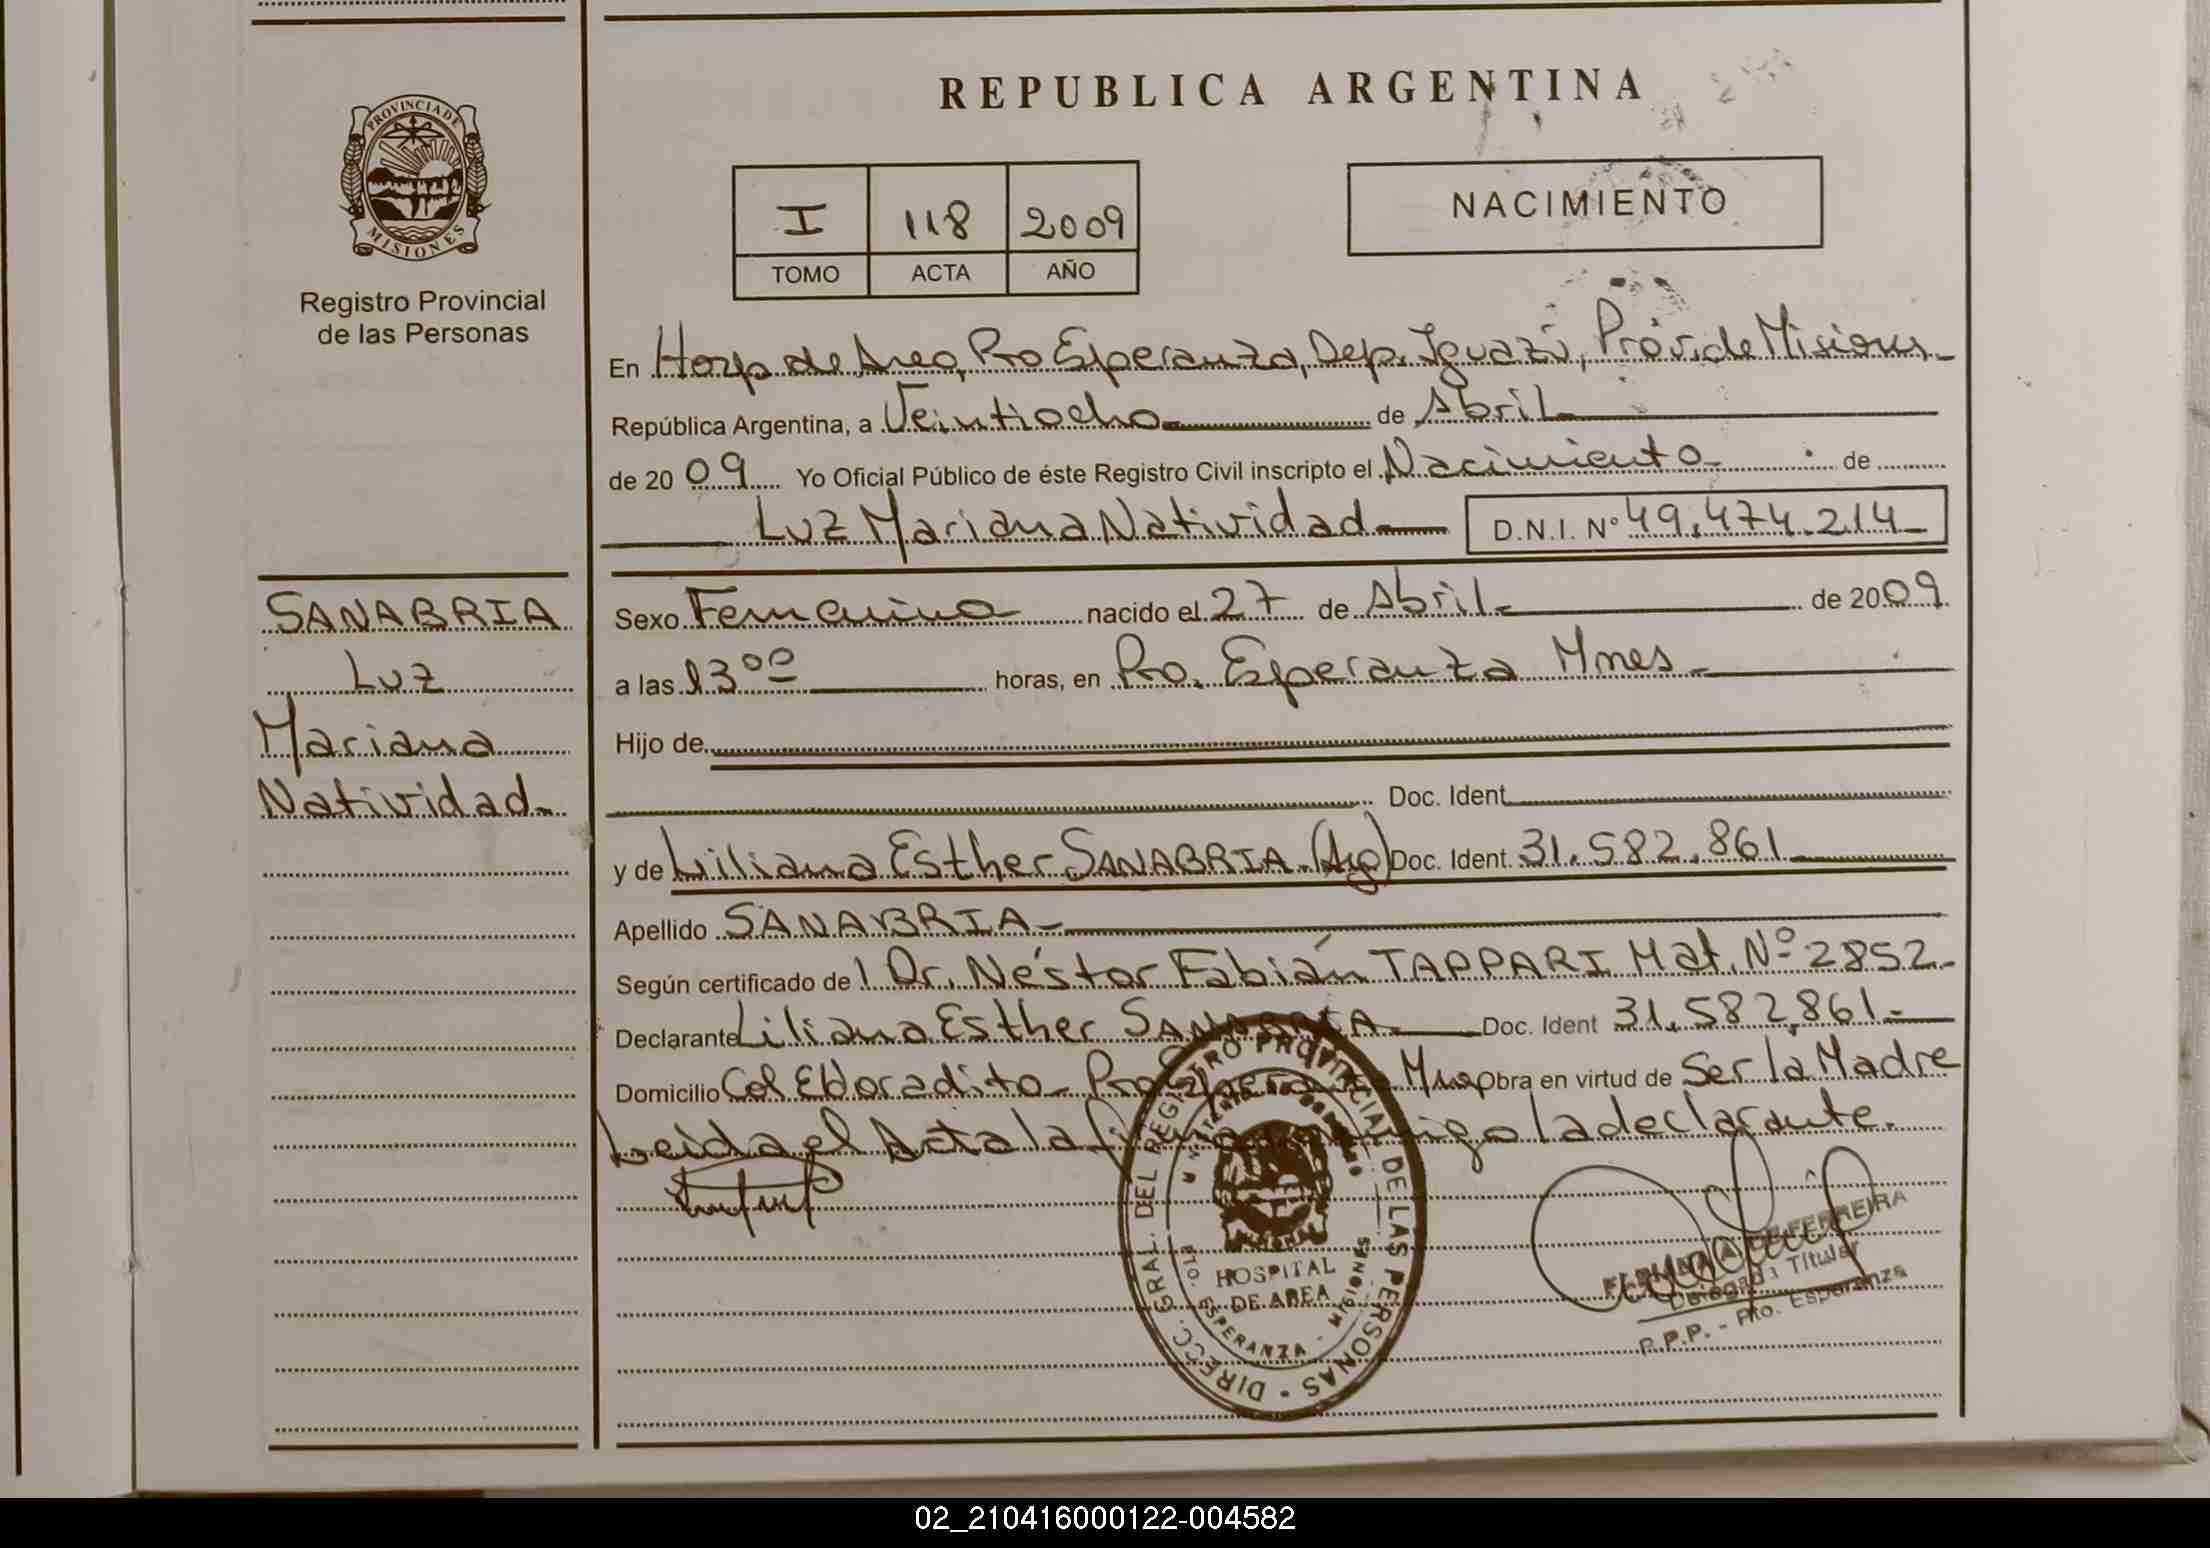 REPUBLICA ARGENTINA
PROVINCIA DE MISIONES
Registro Provincial
de las Personas
I 118 2009
TOMO ACTA AÑO
NACIMIENTO
En Hosp de Area, Pto Esperanza, Dep. Iguazú, Prov. de Misiones
República Argentina, a Veintiocho de Abril
de 20 09 Yo Oficial Público de éste Registro Civil inscripto el Nacimiento de
Luz Mariana Natividad D.N.I. Nº 49.474.214
SANABRIA
Luz
Mariana
Natividad
Sexo Femenino nacido el 27 de Abril de 20 09
a las 13 00 horas, en Pto. Esperanza Mnes
Hijo de
Doc. Ident.
y de Liliana Esther SANABRIA (Arg) Doc. Ident. 31.582.861
Apellido SANABRIA
Según certificado de l Dr. Néstor Fabián TAPPARI Mat. Nº 2852
Declarante Liliana Esther SANABRIA Doc. Ident 31.582.861
Domicilio Col Eldoradito - Pto Esperanza Mnes Obra en virtud de Ser la Madre
Leida el Acta la firma conmigo la declarante.
DIRECC. GRAL. DEL REGISTRO PROVINCIAL DE LAS PERSONAS
HOSPITAL
DE AREA
PTO. ESPERANZA - MISIONES
DE FERREIRA
Delegada Titular
R.P.P. - Pto. Esperanza
02_210416000122-004582